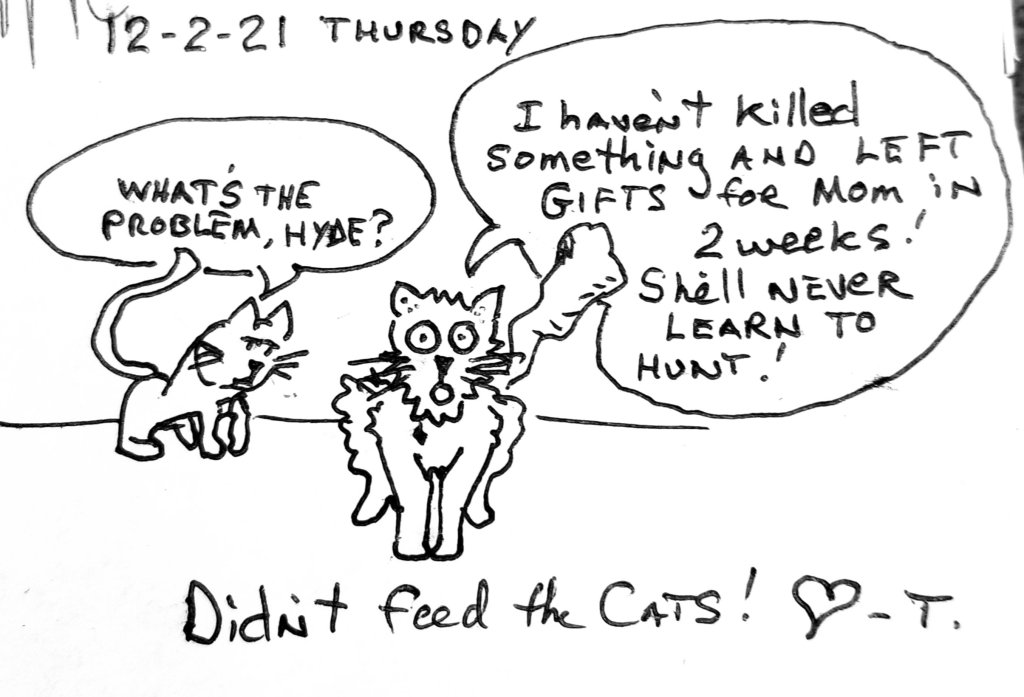 12-2-21 THURSDAY
WHAT'S THE
PROBLEM, HYDE?
I haven't killed
something AND LEFT
GIFTS for Mom iN
2 weeks!
She'll NEVER
LEARN TO
HUNT!
Didn't feed the CATS! ♡ - T.